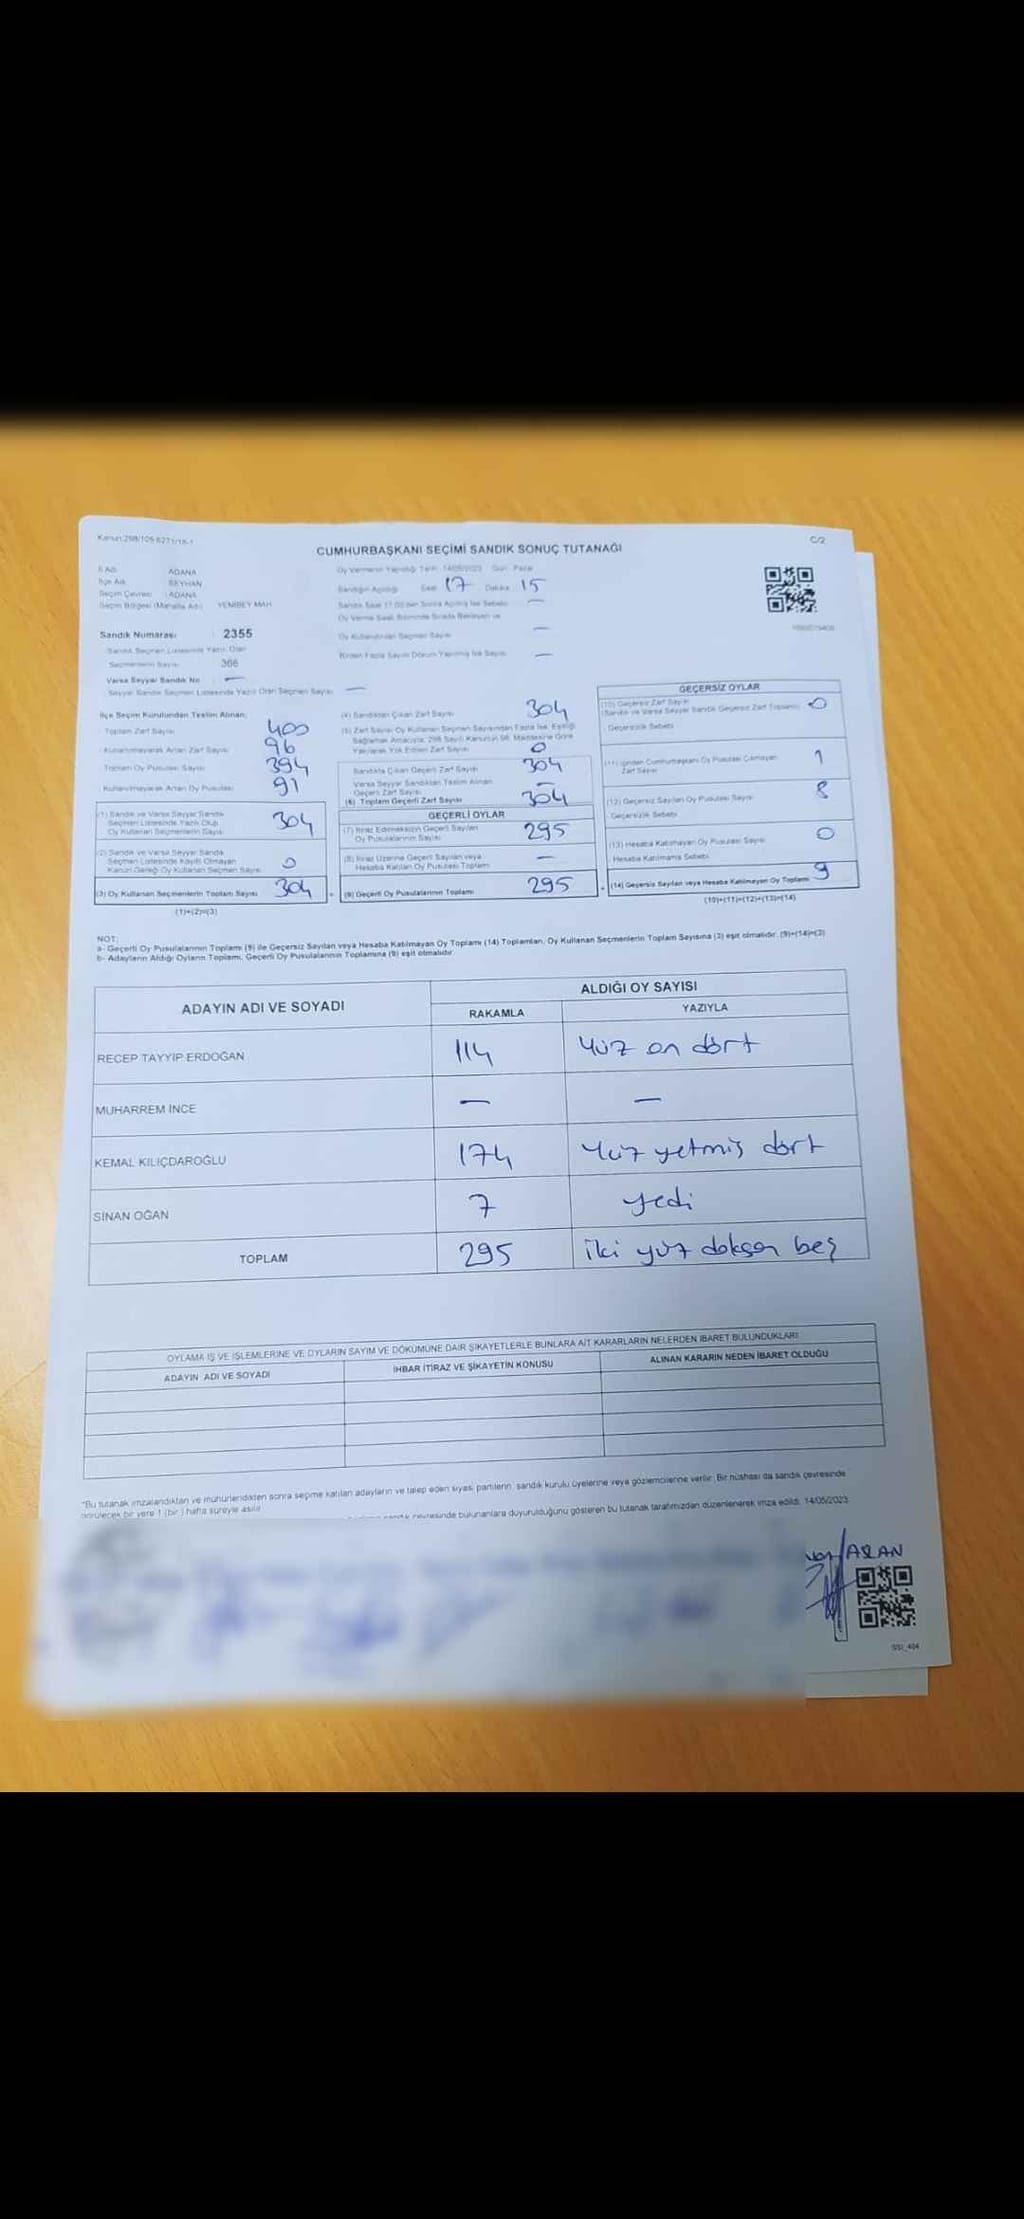 Kanun:298/105 6271/18-1
C/2
CUMHURBAŞKANI SEÇİMİ SANDIK SONUÇ TUTANAĞI
İl Adı ADANA
İlçe Adı SEYHAN
Seçim Çevresi : ADANA
Seçim Bölgesi (Mahalle Adı) YENİBEY MAH
Sandık Numarası : 2355
Sandık Seçmen Listesinde Yazılı Olan
Seçmenlerin Sayısı 366
Varsa Seyyar Sandık No —
Seyyar Sandık Seçmen Listesinde Yazılı Olan Seçmen Sayısı —
Oy Vermenin Yapıldığı Tarih 14/05/2023 Gün: Pazar
Sandığın Açıldığı Saat 17 Dakika 15
Sandık Saat 17.00'den Sonra Açılmış İse Sebebi —
Oy Verme Saati Bitiminde Sırada Bekleyen ve
Oy Kullandırılan Seçmen Sayısı —
Birden Fazla Sayım Döküm Yapılmış İse Sayısı —
İlçe Seçim Kurulundan Teslim Alınan;
Toplam Zarf Sayısı 400
Kullanılmayarak Artan Zarf Sayısı 96
Toplam Oy Pusulası Sayısı 394
Kullanılmayarak Artan Oy Pusulası 91
(1) Sandık ve Varsa Seyyar Sandık
Seçmen Listesinde Yazılı Olup
Oy Kullanan Seçmenlerin Sayısı 304
(2) Sandık ve Varsa Seyyar Sandık
Seçmen Listesinde Kayıtlı Olmayan
Kanun Gereği Oy Kullanan Seçmen Sayısı 0
(3) Oy Kullanan Seçmenlerin Toplam Sayısı 304
(1)+(2)=(3)
(4) Sandıktan Çıkan Zarf Sayısı 304
(5) Zarf Sayısı Oy Kullanan Seçmen Sayısından Fazla İse, Eşitliği
Sağlamak Amacıyla, 298 Sayılı Kanunun 98. Maddesine Göre
Yakılarak Yok Edilen Zarf Sayısı 0
Sandıkta Çıkan Geçerli Zarf Sayısı 304
Varsa Seyyar Sandıktan Teslim Alınan
Geçerli Zarf Sayısı —
(6) Toplam Geçerli Zarf Sayısı 304
GEÇERLİ OYLAR
(7) İtiraz Edilmeksizin Geçerli Sayılan
Oy Pusulalarının Sayısı 295
(8) İtiraz Üzerine Geçerli Sayılan veya
Hesaba Katılan Oy Pusulası Toplamı —
(9) Geçerli Oy Pusulalarının Toplamı 295
GEÇERSİZ OYLAR
(10) Geçersiz Zarf Sayısı
(Sandık ve Varsa Seyyar Sandık Geçersiz Zarf Toplamı) 0
Geçersizlik Sebebi
(11) İçinden Cumhurbaşkanı Oy Pusulası Çıkmayan
Zarf Sayısı 1
(12) Geçersiz Sayılan Oy Pusulası Sayısı 8
Geçersizlik Sebebi
(13) Hesaba Katılmayan Oy Pusulası Sayısı 0
Hesaba Katılmama Sebebi
(14) Geçersiz Sayılan veya Hesaba Katılmayan Oy Toplamı 9
(10)+(11)+(12)+(13)=(14)
NOT:
a- Geçerli Oy Pusulalarının Toplamı (9) ile Geçersiz Sayılan veya Hesaba Katılmayan Oy Toplamı (14) Toplamları, Oy Kullanan Seçmenlerin Toplam Sayısına (3) eşit olmalıdır. (9)+(14)=(3)
b- Adayların Aldığı Oyların Toplamı, Geçerli Oy Pusulalarının Toplamına (9) eşit olmalıdır.
ADAYIN ADI VE SOYADI ALDIĞI OY SAYISI
RAKAMLA YAZIYLA
RECEP TAYYİP ERDOĞAN 114 yüz on dört
MUHARREM İNCE — —
KEMAL KILIÇDAROĞLU 174 yüz yetmiş dört
SİNAN OĞAN 7 yedi
TOPLAM 295 iki yüz doksan beş
OYLAMA İŞ VE İŞLEMLERİNE VE OYLARIN SAYIM VE DÖKÜMÜNE DAİR ŞİKAYETLERLE BUNLARA AİT KARARLARIN NELERDEN İBARET BULUNDUKLARI
ADAYIN ADI VE SOYADI İHBAR İTİRAZ VE ŞİKAYETİN KONUSU ALINAN KARARIN NEDEN İBARET OLDUĞU
*Bu tutanak imzalandıktan ve mühürlendikten sonra seçime katılan adayların ve talep eden siyasi partilerin sandık kurulu üyelerine veya gözlemcilerine verilir. Bir nüshası da sandık çevresinde
görülecek bir yere 1 (bir) hafta süreyle asılır.
sandık çevresinde bulunanlara duyurulduğunu gösteren bu tutanak tarafımızdan düzenlenerek imza edildi. 14/05/2023
ASLAN
SSI_404